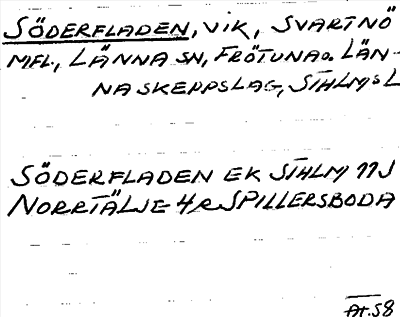 SÖDERFLADEN, VIK, SVARTNÖ
MFL., LÄNNA SN, FRÖTUNA O. LÄN-
NA SKEPPSLAG, STHLMS L
SÖDERFLADEN EK STHLM 11J
NORRTÄLJE 4 R SPILLERSBODA
At. 58